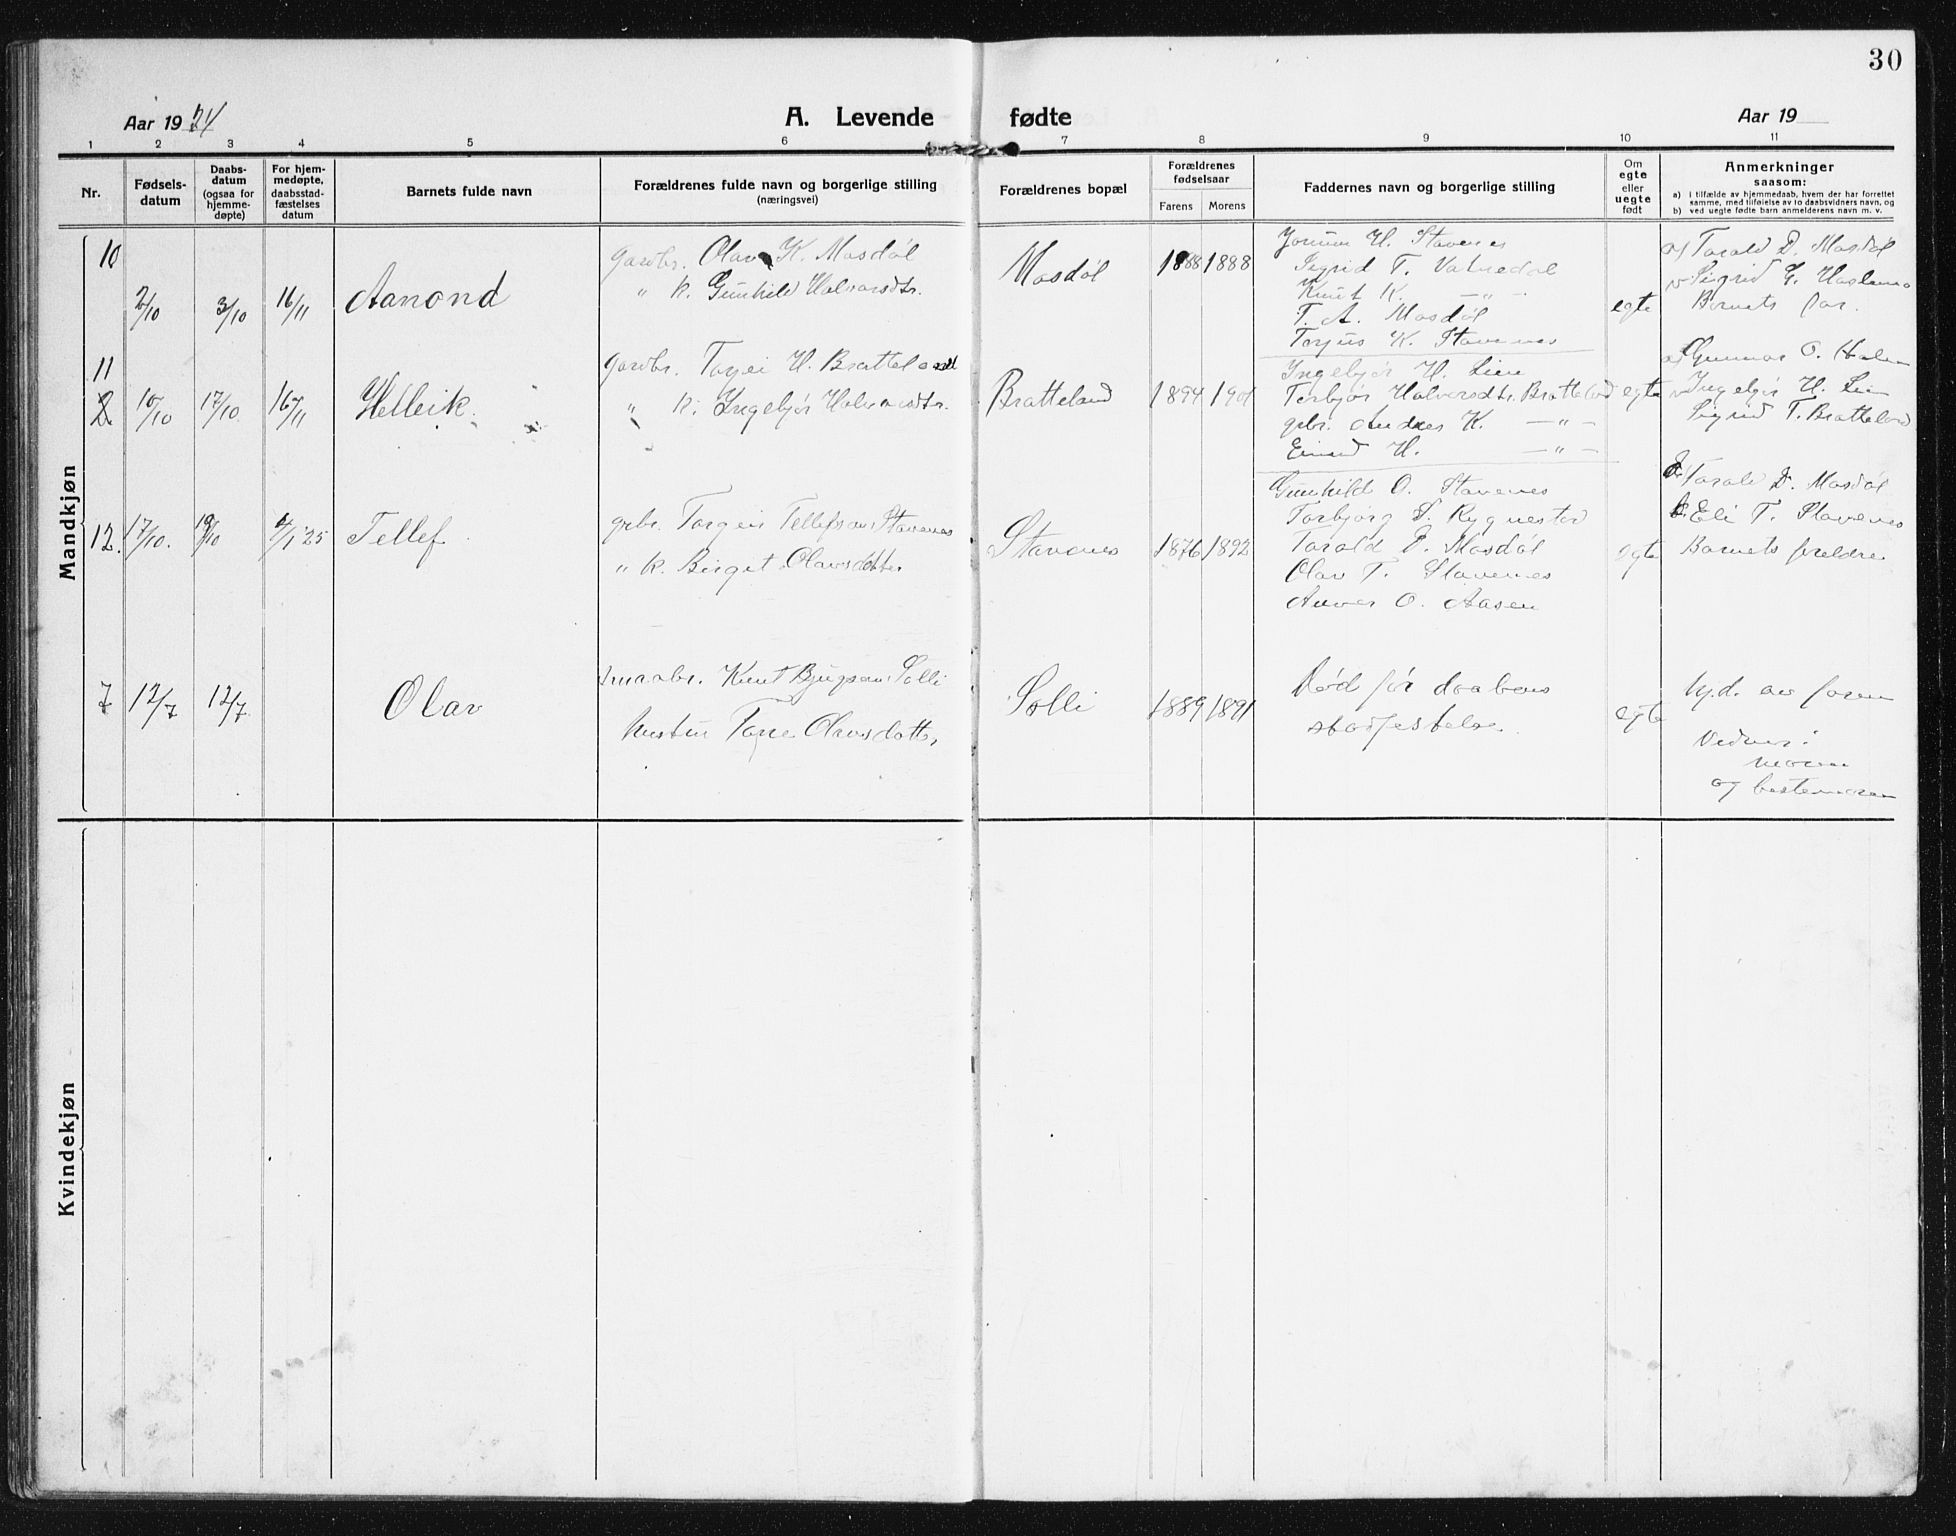 30
Aar 1924
A. Levende fødte
Aar 19
1 2 3 4 5 6 7 8 9 10 11
Nr.
Fødsels-
datum
Daabs-
datum
(ogsaa for
hjemme-
døpte)
For hjem-
medøpte,
daabsstad-
fæstelses
datum
Barnets fulde navn
Forældrenes fulde navn og borgerlige stilling
(næringsvei)
Forældrenes bopæl
Forældrenes
fødselsaar
Farens Morens
Faddernes navn og borgerlige stilling
Om
egte
eller
uegte
født
Anmerkninger
saasom:
a) i tilfælde av hjemmedaab, hvem der har forrettet
samme, med tilføielse av to daabsvidners navn, og
b) ved uegte fødte barn anmelderens navn m. v.
Mandkjøn
10
2/10 3/10 16/11
Aanond
Gardbr. Olav K. Mosdøl
" k. Gunhild Halvorsdtr.
Mosdøl
1888 1888
Jorunn H. Stavenes
Sigrid T. Vatnedal
Knut K. — " —
T. A. Mosdøl
Torjus K. Stavenes
egte
af Tarald D. Mosdøl
v Sigrid
Barnets far.
11
2
10/10 17/10 16/11
Helleik.
Gardbr. Torjei H. Bratteland
" k. Ingebjør Halvorsdtr.
Bratteland
1894 1901
Ingebjør H. Lien
Torbjør Halvorsdtr. Bratteland
gbr. Andres K. — " —
Eivind H. — " —
egte
af Gunnar O.
v Ingebjør H. Lien
Sigrid T. Bratteland
12.
17/10. 19/10 4/1 '25
Tellef
gbr. Torgeir Tellefson Stavenes
" k. Birgit Olavsdotter
Stavenes
1876 1892
Gunhild O. Stavenes
Torbjørg T. Rygnestad
Tarald D. Mosdøl
Olav T. Stavenes
O. Aasen
egte
Tarald D. Mosdøl
Eli T. Stavenes
Barnets foreldre
7
12/7 12/7
Olav
Smaabr. Knut Bjugson Solli
hustru Tone Olavsdotter
Solli
1889 1891
Død før daabens
stadfestelse.
egte
Hj.d. av faren
Vidner:
moren
og bestemoren
Kvindekjøn